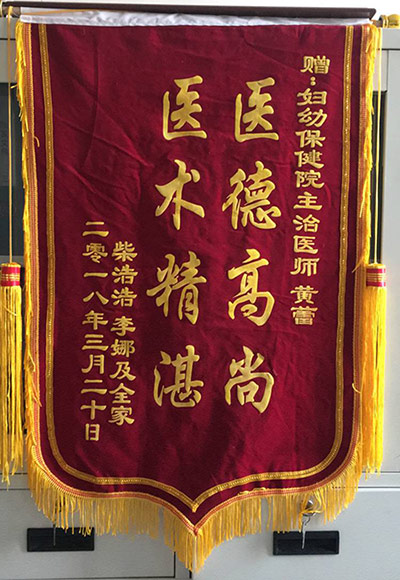 赠:妇幼保健院主治医师 黄蕾
医德高尚
医术精湛
柴浩浩 李娜及全家
二零一八年三月二十日